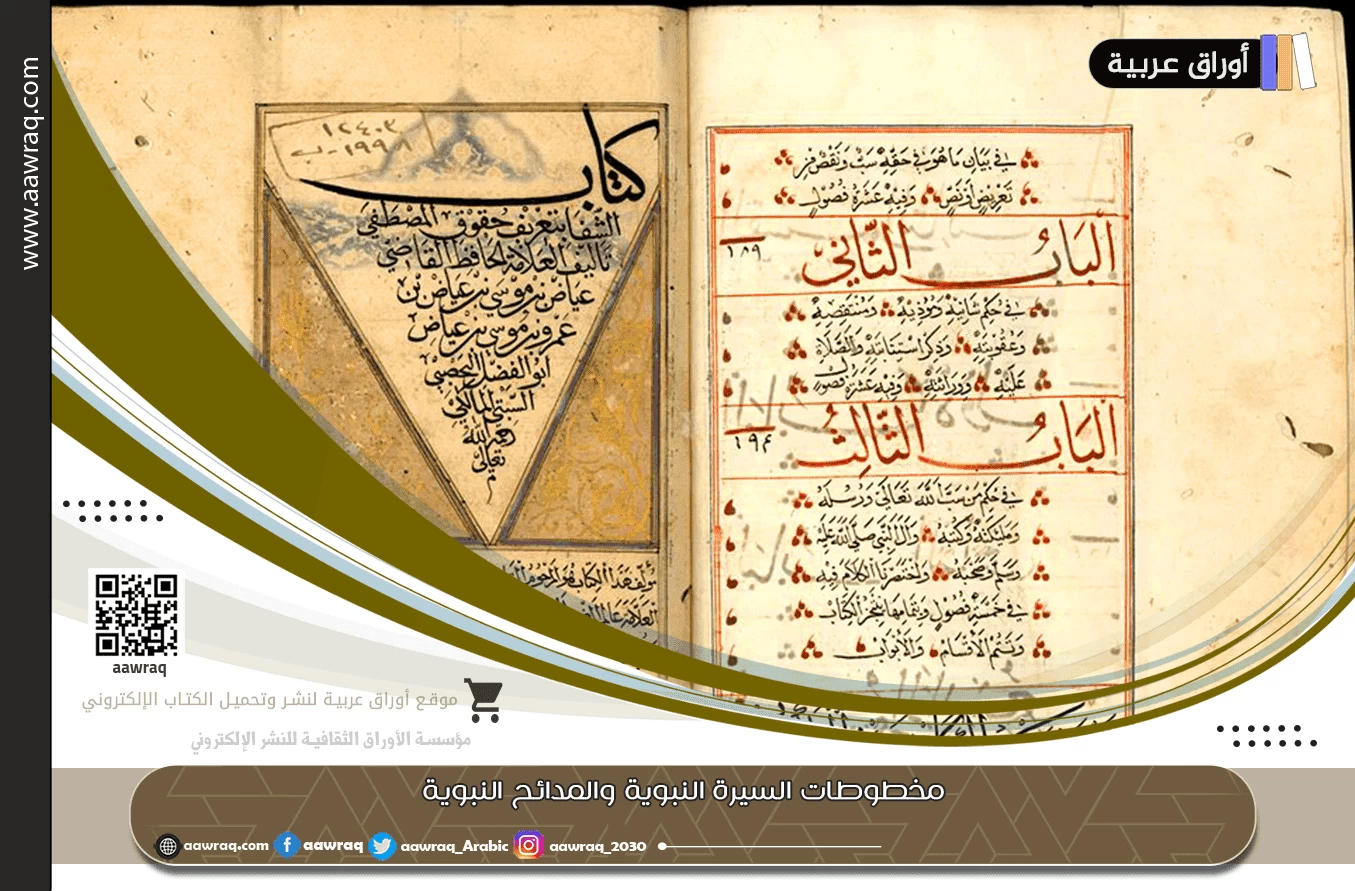 www.aawraq.com
أوراق عربية
في بيان ما هو في حقه سب ونقص من
تعريض أو نص وفيه عشرة فصول
الباب الثاني
١٨٩
في حكم شانيه ومؤذيه ومنتقصه
وعقوبته وذكر استتابته والصلاة
عليه ووراثته وفيه عشرة فصول
الباب الثالث
١٩٤
في حكم من سب الله تعالى ورسله
وملئكته وكتبه وآل النبي صلى الله عليه
وسلم وصحبه واختصرنا الكلام فيه
في خمسة فصول وبتمامها ينجز الكتاب
وتتم الأقسام والأبواب
١٢٤٠٣
١٩٩٨-ب
كتاب
الشفا بتعريف حقوق المصطفى
تأليف العلامة الحافظ القاضي
عياض بن موسى بن عياض بن
عمرو بن موسى بن عياض
أبو الفضل اليحصبي
السبتي المالكي
رحمه الله
تعالى
م
مؤلف هذا الكتاب هو المرحوم
العلامة عالم
aawraq
موقع أوراق عربية لنشر وتحميل الكتاب الإلكتروني
مؤسسة الأوراق الثقافية للنشر الإلكتروني
مخطوطات السيرة النبوية والمدائح النبوية
aawraq.com aawraq aawraq_Arabic aawraq_2030